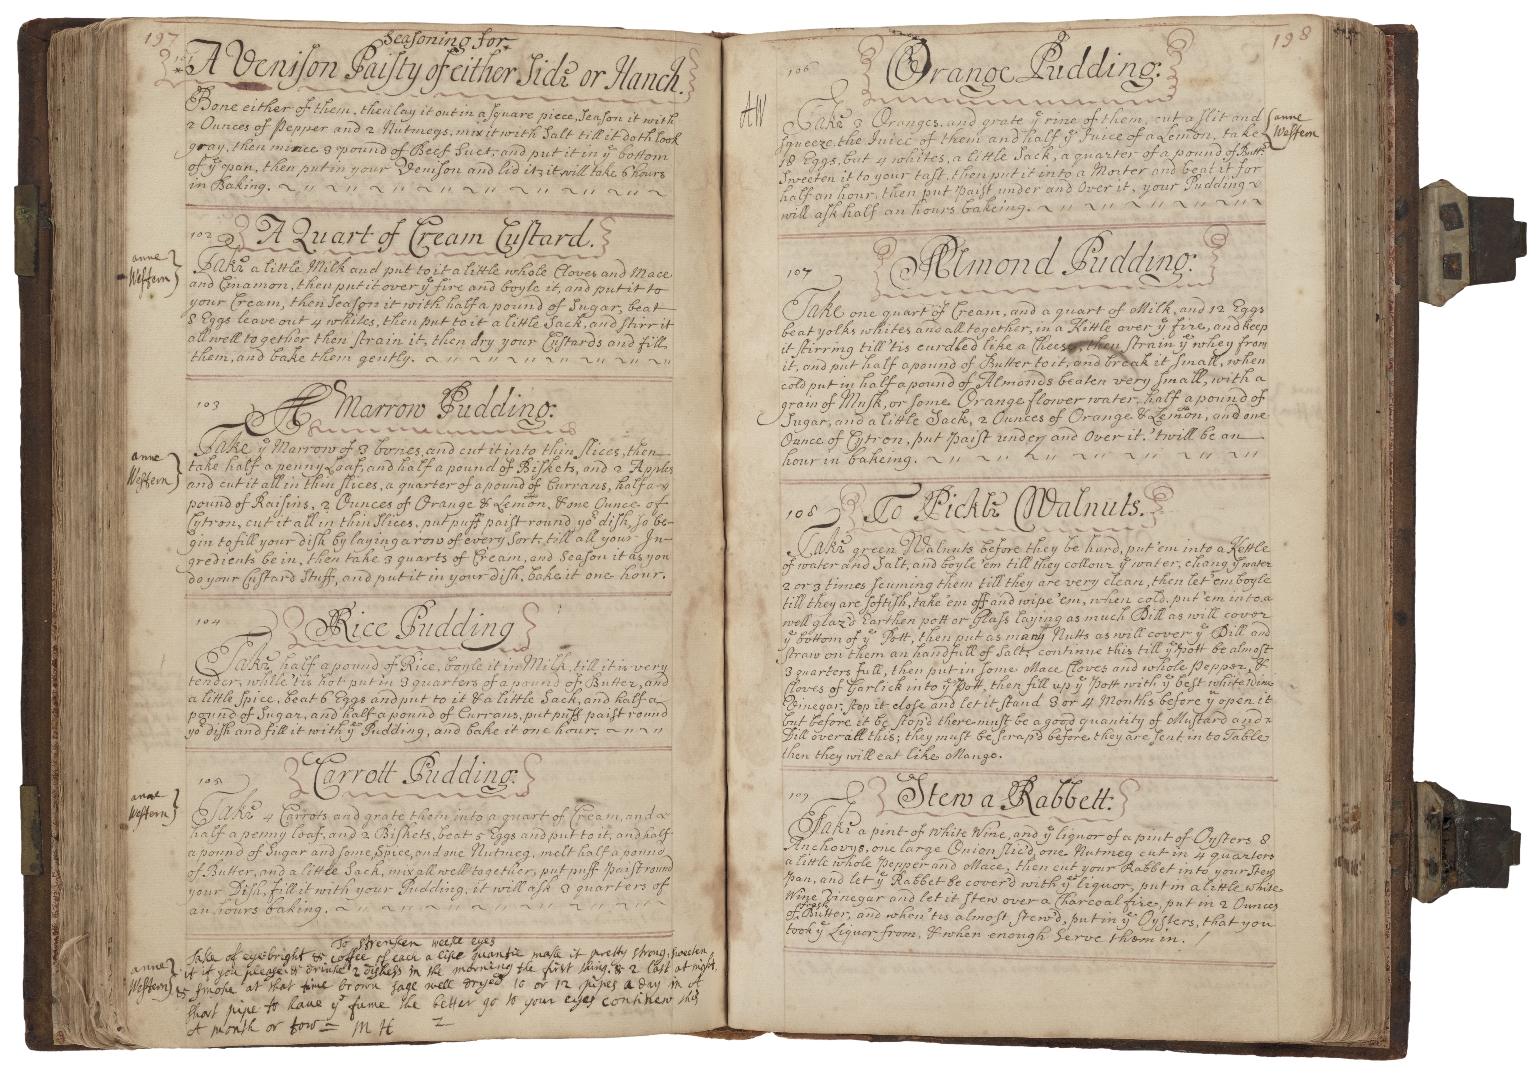 197
Seasoning for
A Venison Paisty of either Side or Hanch.
Bone either of them, then lay it out in a square piece, Season it with
2 Ounces of Pepper and 2 Nutmegs, mix it with Salt till it doth look
gray, then mince 3 pound of Beef Suet, and put it in yᵉ bottom
of yᵉ pan, then put in your Venison and lid it; it will take 6 hours
in Baking.
102
A Quart of Cream Custard.
anne
Western
Take a little Milk and put to it a little whole Cloves and Mace
and Cinamon, then put it over yᵉ fire and boyle it, and put it to
your Cream, then Season it with half a pound of Sugar, beat
8 Eggs leave out 4 whites, then put to it a little Sack, and stirr it
all well together then strain it, then dry your Custards and fill
them, and bake them gently.
103
A Marrow Pudding:
anne
Western
Take yᵉ Marrow of 3 bones, and cut it into thin slices, then
take half a penny Loaf, and half a pound of Biskets, and 2 Apples
and cut it all in thin slices, a quarter of a pound of Currans, half a
pound of Raisins, 2 Ounces of Orange & Lemon, & one Ounce of
Cytron, cut it all in thin slices, put puff paist round yoʳ dish, so be-
gin to fill your dish by laying a row of every sort, till all your In-
gredients be in, then take 3 quarts of Cream, and Season it as you
do your Custard Stuff, and put it in your dish, bake it one hour.
104
Rice Pudding
Take half a pound of Rice, boyle it in Milk, till it is very
tender, while 'tis hot put in 3 quarters of a pound of Butter, and
a little spice, beat 6 Eggs and put to it & a little Sack, and half a
pound of Sugar, and half a pound of Currans, put puff paist round
yoʳ dish and fill it with yᵉ Pudding, and bake it one hour.
105
Carrott Pudding:
anne
Western
Take 4 Carrots and grate them into a quart of Cream, and a
half a penny loaf, and 2 Biskets, beat 5 Eggs and put to it, and half
a pound of Sugar and some Spice, and one Nutmeg, melt half a pound
of Butter, and a little Sack, mix all well together, put puff Paist round
your Dish, fill it with your Pudding, it will ask 3 quarters of
an hours baking.
To strenken weeke eyes
anne
Western
Take of eyebright & coffee of each a like quantie make it pretty strong, sweeten
it if you please & drinke 2 dishess in the morning the first thing, & 2 last at night
& smoke at that time brown sage well dryed 10 or 12 pipes a day in A
short pipe to have yᵉ fume the better go to your eyes continew this
A month or tow = M H
198
106
Orange Pudding:
AW
anne
Western
Take 3 Oranges, and grate yᵉ rine of them, cut a slit and
squeeze the Juice of them and half yᵉ Juice of a Lemon, take
18 Eggs, but 4 whites, a little Sack, a quarter of a pound of Buttʳ
Sweeten it to your tast, then put it into a Morter and beat it for
half an hour, then put Paist under and Over it, your Pudding
will ask half an hours bakeing.
107
Almond Pudding:
Take one quart of Cream, and a quart of Milk, and 12 Eggs
beat yolks whites and all together, in a Kittle over yᵉ fire, and keep
it stirring till 'tis curdled like a Cheese, then strain yᵉ whey from
it, and put half a pound of Butter to it, and break it small, when
cold put in half a pound of Almonds beaten very small, with a
grain of Musk, or some Orange flower water, half a pound of
Sugar, and a little Sack, 2 Ounces of Orange & Lemon, and one
Ounce of Cytron, put Paist under and Over it. 'twill be an
hour in bakeing.
108
To Pickle Walnuts.
Take green Walnuts before they be hard, put 'em into a Kettle
of water and Salt, and boyle 'em till they collour yᵉ water, chang yᵉ water
2 or 3 times scuming them till they are very clean, then let 'em boyle
till they are softish, take 'em off and wipe 'em, when cold, put 'em into a
well glaz'd Earthen pott or Glass laying as much Dill as will cover
yᵉ bottom of yᵉ Pott, then put as many Nutts as will cover yᵉ Dill and
straw on them an handfull of Salt, continue this till yᵉ pott be almost
3 quarters full, then put in some Mace Cloves and whole Pepper, &
Cloves of Garlick into yᵉ Pott, then fill up yᵉ Pott with yᵉ best white Wine
Vinegar, stop it close and let it stand 3 or 4 Months before yᵉ open it
but before it be stop'd there must be a good quantity of Mustard and
Dill over all this; they must be scrap'd before they are sent in to Table
then they will eat like Mango.
109
Stew a Rabbett:
Take a pint of White Wine, and yᵉ liquor of a pint of Oysters 8
Anchovys, one large Onion slic'd, one Nutmeg cut in 4 quarters
a little whole Pepper and Mace, then cut your Rabbet into your Stew
Pan, and let yᵉ Rabbet be cover'd with yᵉ liquor, put in a little white
Wine Vinegar and let it stew over a Charcoal fire, put in 2 Ounces
of fresh Butter, and when 'tis almost stew'd, put in yᵉ Oysters, that you
took yᵉ Liquor from, & when enough Serve them in.